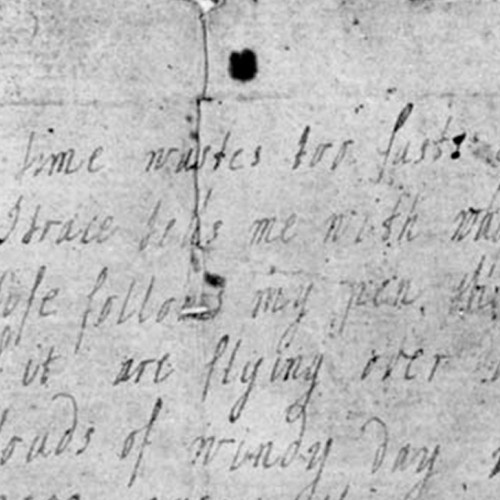 time wastes too fast:
I trace tells me with wha
life follows my pen, the
f it are flying over
louds of windy day